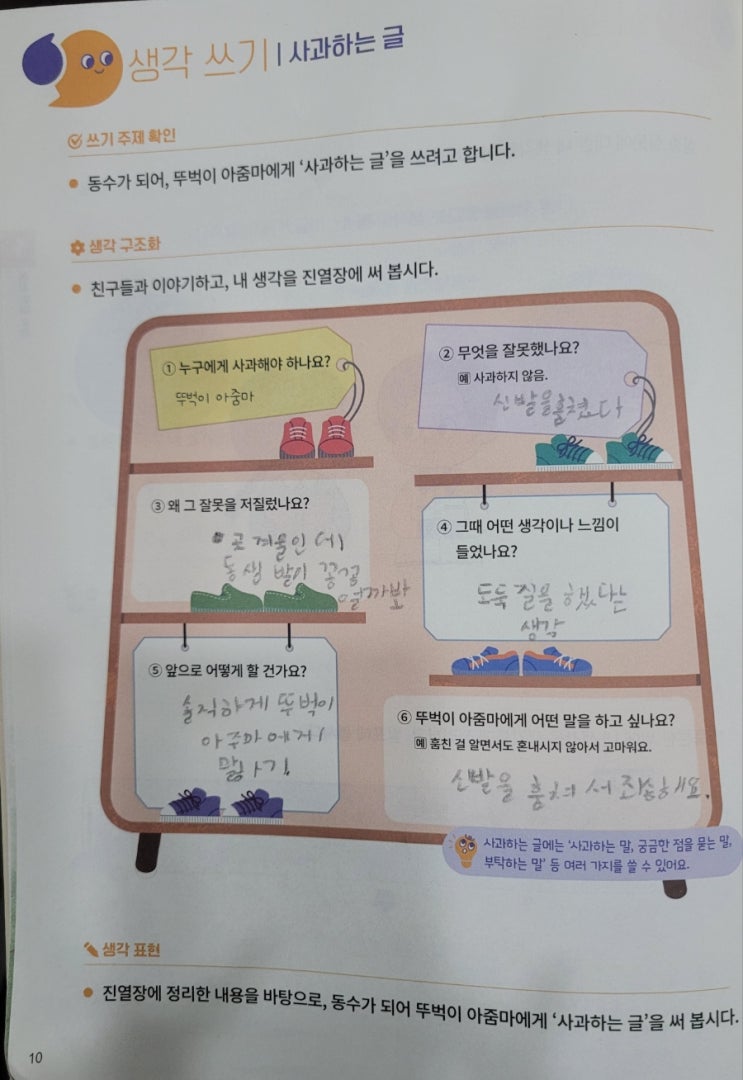 생각 쓰기 | 사과하는 글
쓰기 주제 확인
동수가 되어, 뚜벅이 아줌마에게 '사과하는 글'을 쓰려고 합니다.
생각 구조화
친구들과 이야기하고, 내 생각을 진열장에 써 봅시다.
① 누구에게 사과해야 하나요?
뚜벅이 아줌마
② 무엇을 잘못했나요?
예 사과하지 않음.
신발을훔쳤다
③ 왜 그 잘못을 저질렀나요?
곧 겨울인데
동생 발이 꽁꽁
얼까봐
④ 그때 어떤 생각이나 느낌이
들었나요?
도둑질을 했다는
생각
⑤ 앞으로 어떻게 할 건가요?
솔직하게 뚜벅이
아주마에게
말하기
⑥ 뚜벅이 아줌마에게 어떤 말을 하고 싶나요?
예 훔친 걸 알면서도 혼내시지 않아서 고마워요.
신발을 훔쳐서 죄송해요.
사과하는 글에는 '사과하는 말, 궁금한 점을 묻는 말,
부탁하는 말' 등 여러 가지를 쓸 수 있어요.
생각 표현
진열장에 정리한 내용을 바탕으로, 동수가 되어 뚜벅이 아줌마에게 '사과하는 글'을 써 봅시다.
10